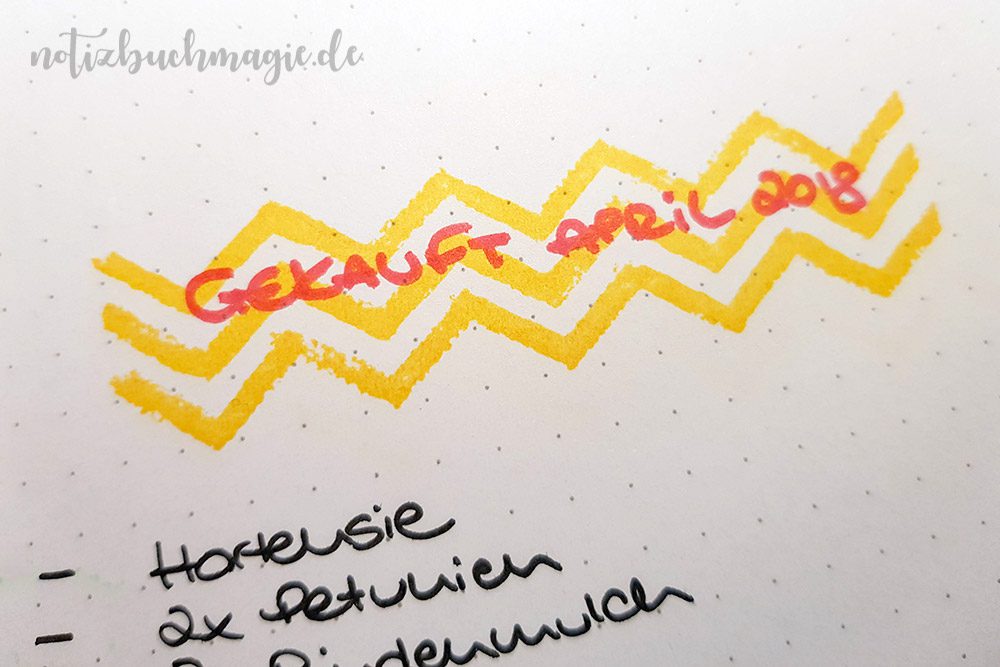 notizbuchmagie.de
GEKAUFT APRiL 2018
- Hortensie
- 2x Petunien
Rindenmulch